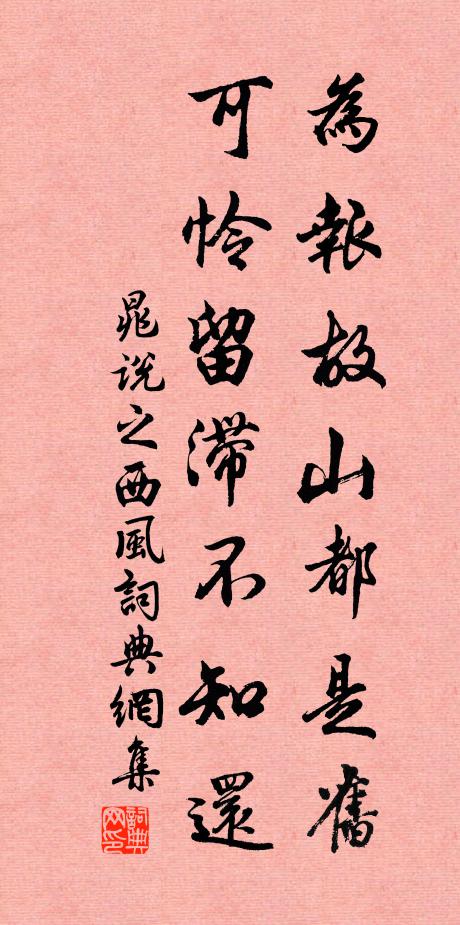 為報故山都是舊
可憐留滯不知還
晁説之西風詞典網集
詞典網印